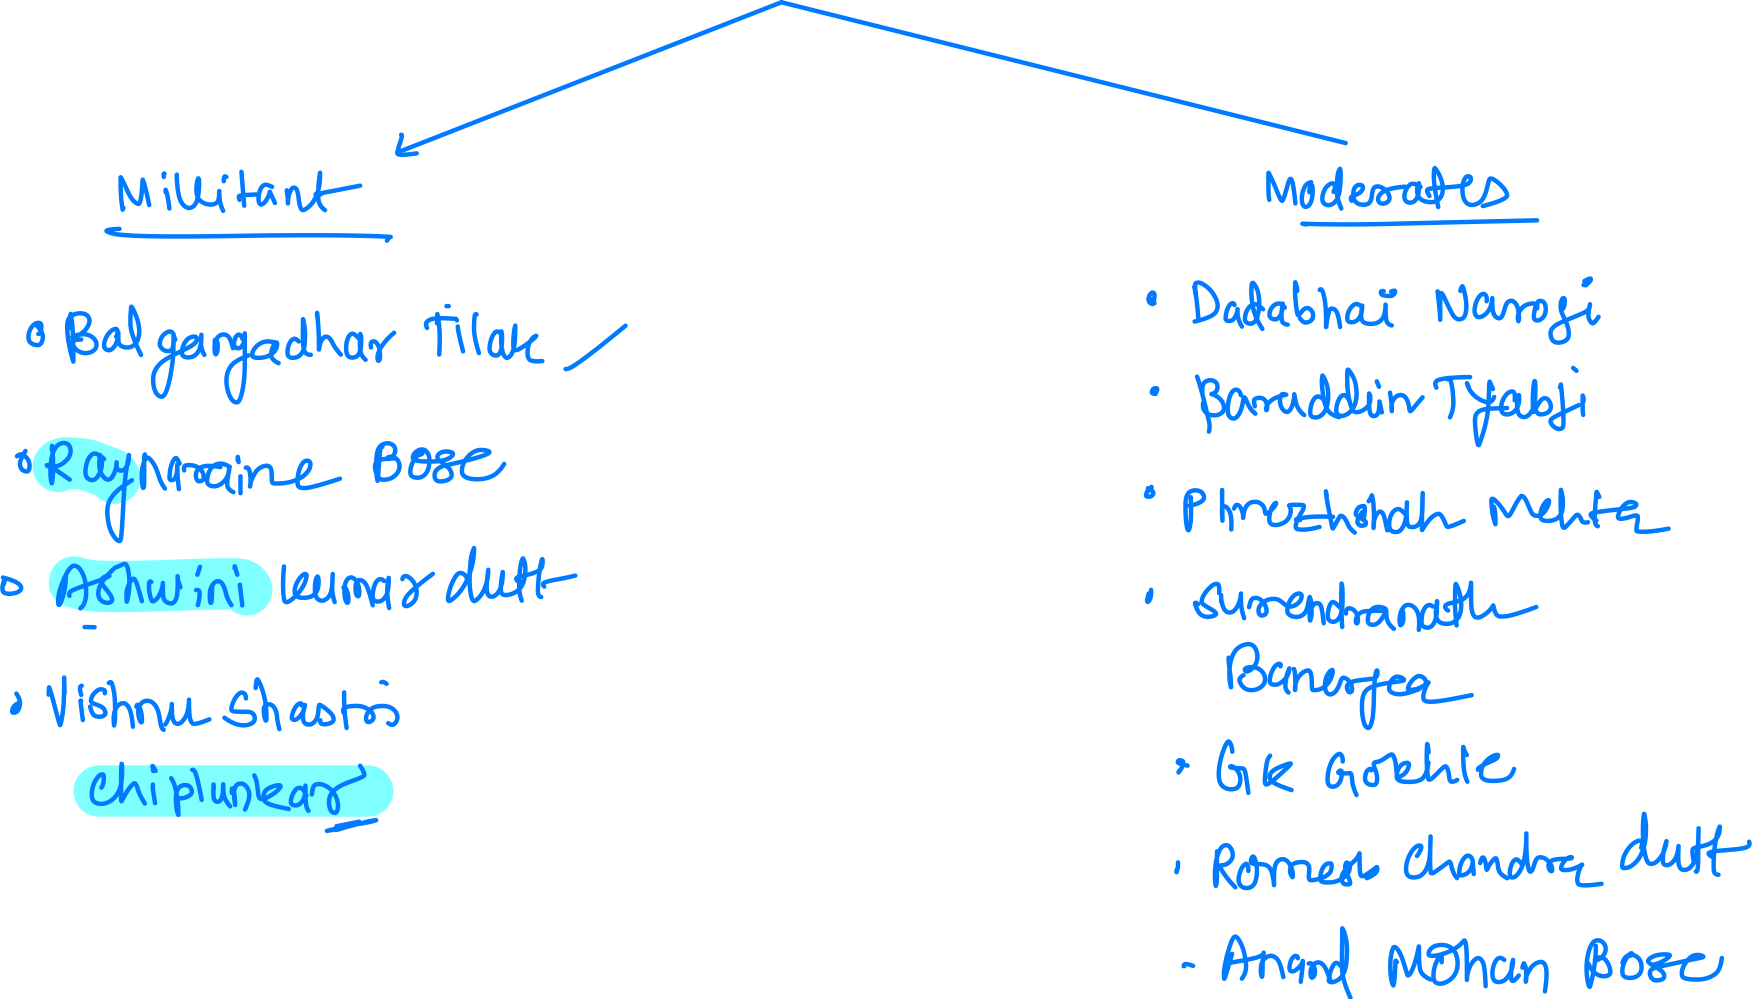 Millitant
Bal gangadhar Tilak
Raynaraine Bose
Ashwini kumar dutt
Vishnu Shastri
Chiplunkar
Moderates
Dadabhai Narogi
Baruddin Tyabji
Phrezhshah Mehta
Surendranath
Banerjea
GK Gokhle
Romesh Chandra dutt
Anand Mohan Bose